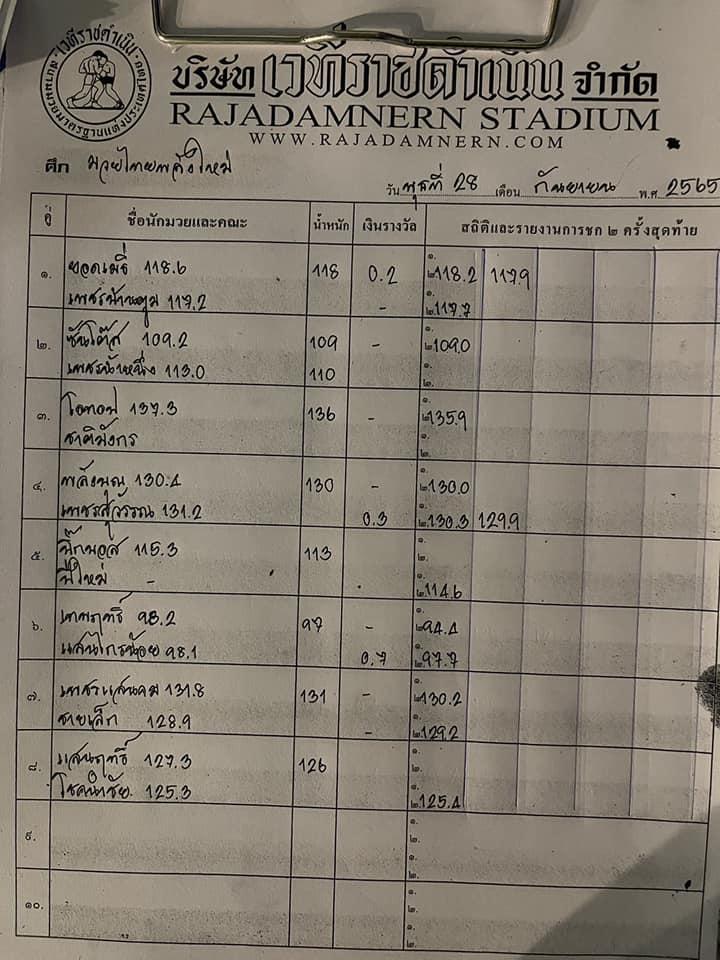 เวทีราชดำเนิน
บริษัท เวทีราชดำเนิน จำกัด
RAJADAMNERN STADIUM
WWW.RAJADAMNERN.COM
ศึก มวยไทยพลังใหม่
วัน พุธที่ 28 เดือน กันยายน พ.ศ 2565
คู่ ชื่อนักมวยและคณะ น้ำหนัก เงินรางวัล สถิติและรายงานการชก ๒ ครั้งสุดท้าย
๑. ยอดเมธี 118.6 118 0.2 ๑. ๒. 118.2 117.9
เพชรน้ำหนุม 117.2 - ๑. ๒. 117.7
๒. ซันโต๊ส 109.2 109 - ๑. ๒. 109.0
เพชรน้ำหนึ่ง 113.0 110 ๑. ๒.
๓. โอทอป 137.3 136 - ๑. ๒. 135.9
ชาติมังกร ๑. ๒.
๔. พลังบุญ 130.4 130 - ๑. ๒. 130.0
เพชรสุวรรณ 131.2 0.3 ๑. ๒. 130.3 129.9
๕. บิ๊กบอส 115.3 113 ๑. ๒.
ปีใหม่ - ๑. ๒. 114.6
๖. เทพฤทธิ์ 98.2 97 - ๑. ๒. 94.4
แสนไกรน้อย 98.1 0.7 ๑. ๒. 97.7
๗. เพชรแสนคม 131.8 131 - ๑. ๒. 130.2
ชายเล็ก 128.9 - ๑. ๒. 129.2
๘. แสนฤทธิ์ 127.3 126 ๑. ๒.
โชคนำชัย 125.3 ๑. ๒. 125.4
๙. ๑. ๒.
๑. ๒.
๑๐. ๑. ๒.
๑. ๒.